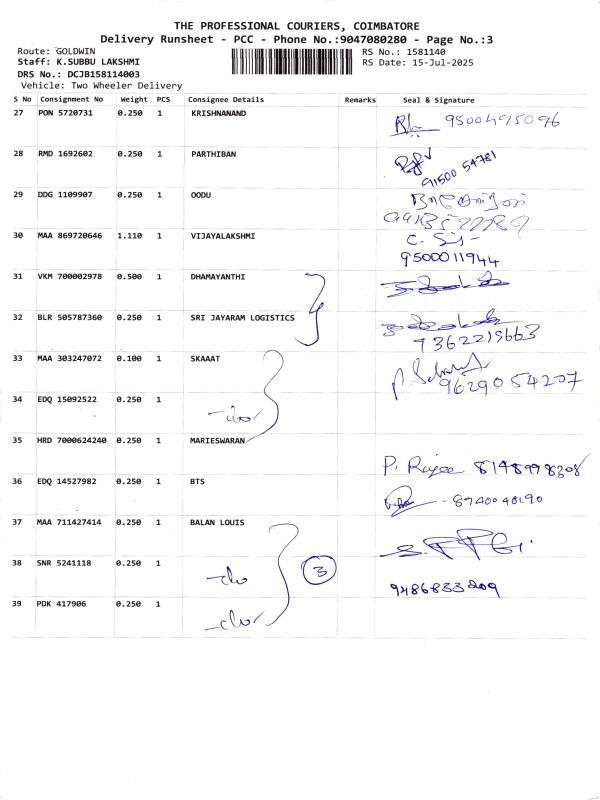 THE PROFESSIONAL COURIERS, COIMBATORE
Delivery Runsheet - PCC - Phone No.:9047080280 - Page No.:3
Route: GOLDWIN
RS No.: 1581140
Staff: K.SUBBU LAKSHMI
RS Date: 15-Jul-2025
DRS No.: DCJB158114003
Vehicle: Two Wheeler Delivery
S No Consignment No Weight PCS Consignee Details Remarks Seal & Signature
27 PON 5720731 0.250 1 KRISHNANAND
9500495096
28 RMD 1692602 0.250 1 PARTHIBAN
91500 54781
29 DDG 1109907 0.250 1 OODU
30 MAA 869720646 1.110 1 VIJAYALAKSHMI
9500011944
31 VKM 700002978 0.500 1 DHAMAYANTHI
32 BLR 505787360 0.250 1 SRI JAYARAM LOGISTICS
7362219663
33 MAA 303247072 0.100 1 SKAAAT
9629054207
34 EDQ 15092522 0.250 1
35 HRD 7000624240 0.250 1 MARIESWARAN
P. Rajee 8148998308
36 EDQ 14527982 0.250 1 BTS
8740040190
37 MAA 711427414 0.250 1 BALAN LOUIS
38 SNR 5241118 0.250 1 3
9486833209
39 PDK 417906 0.250 1